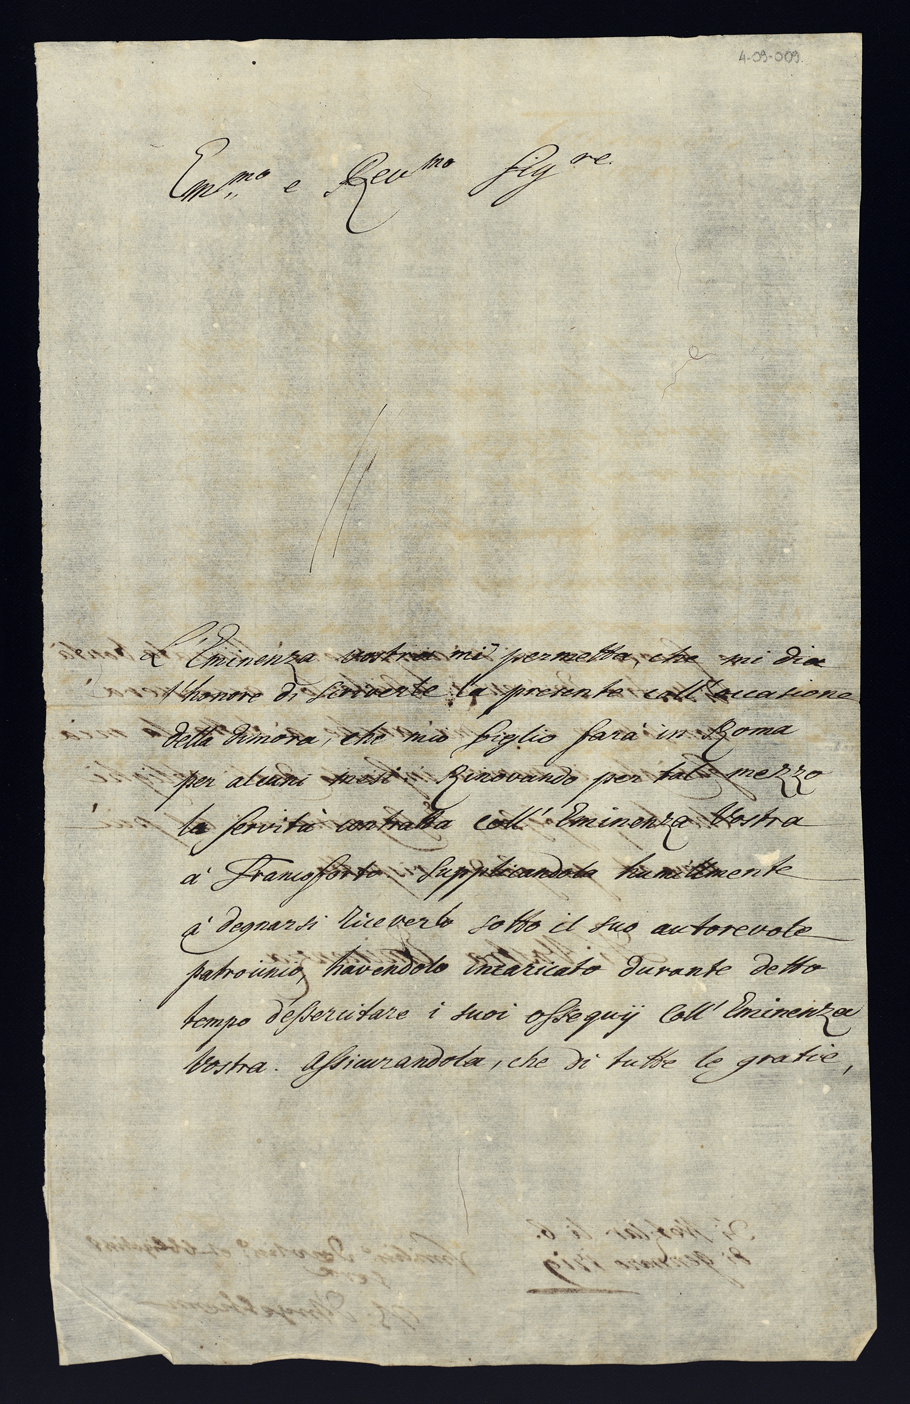 4-09-009.
Em.mo e Reu.mo Sig.re
L'Eminenza vostra mi permetta, che mi dia
l'honore di scriverle la presente coll'occasione
della dimora, che mio figlio farà in Roma
per alcuni mesi Rinovando per tale mezzo
la servitù contratta coll'Eminenza Vostra
à Francoforto Supplicandola humillmente
à degnarsi riceverlo sotto il suo autorevole
patrocinio, havendolo incaricato durante detto
tempo d'essercitare i suoi ossequij coll'Eminenza
Vostra. Assicurandola, che di tutte le gratie,